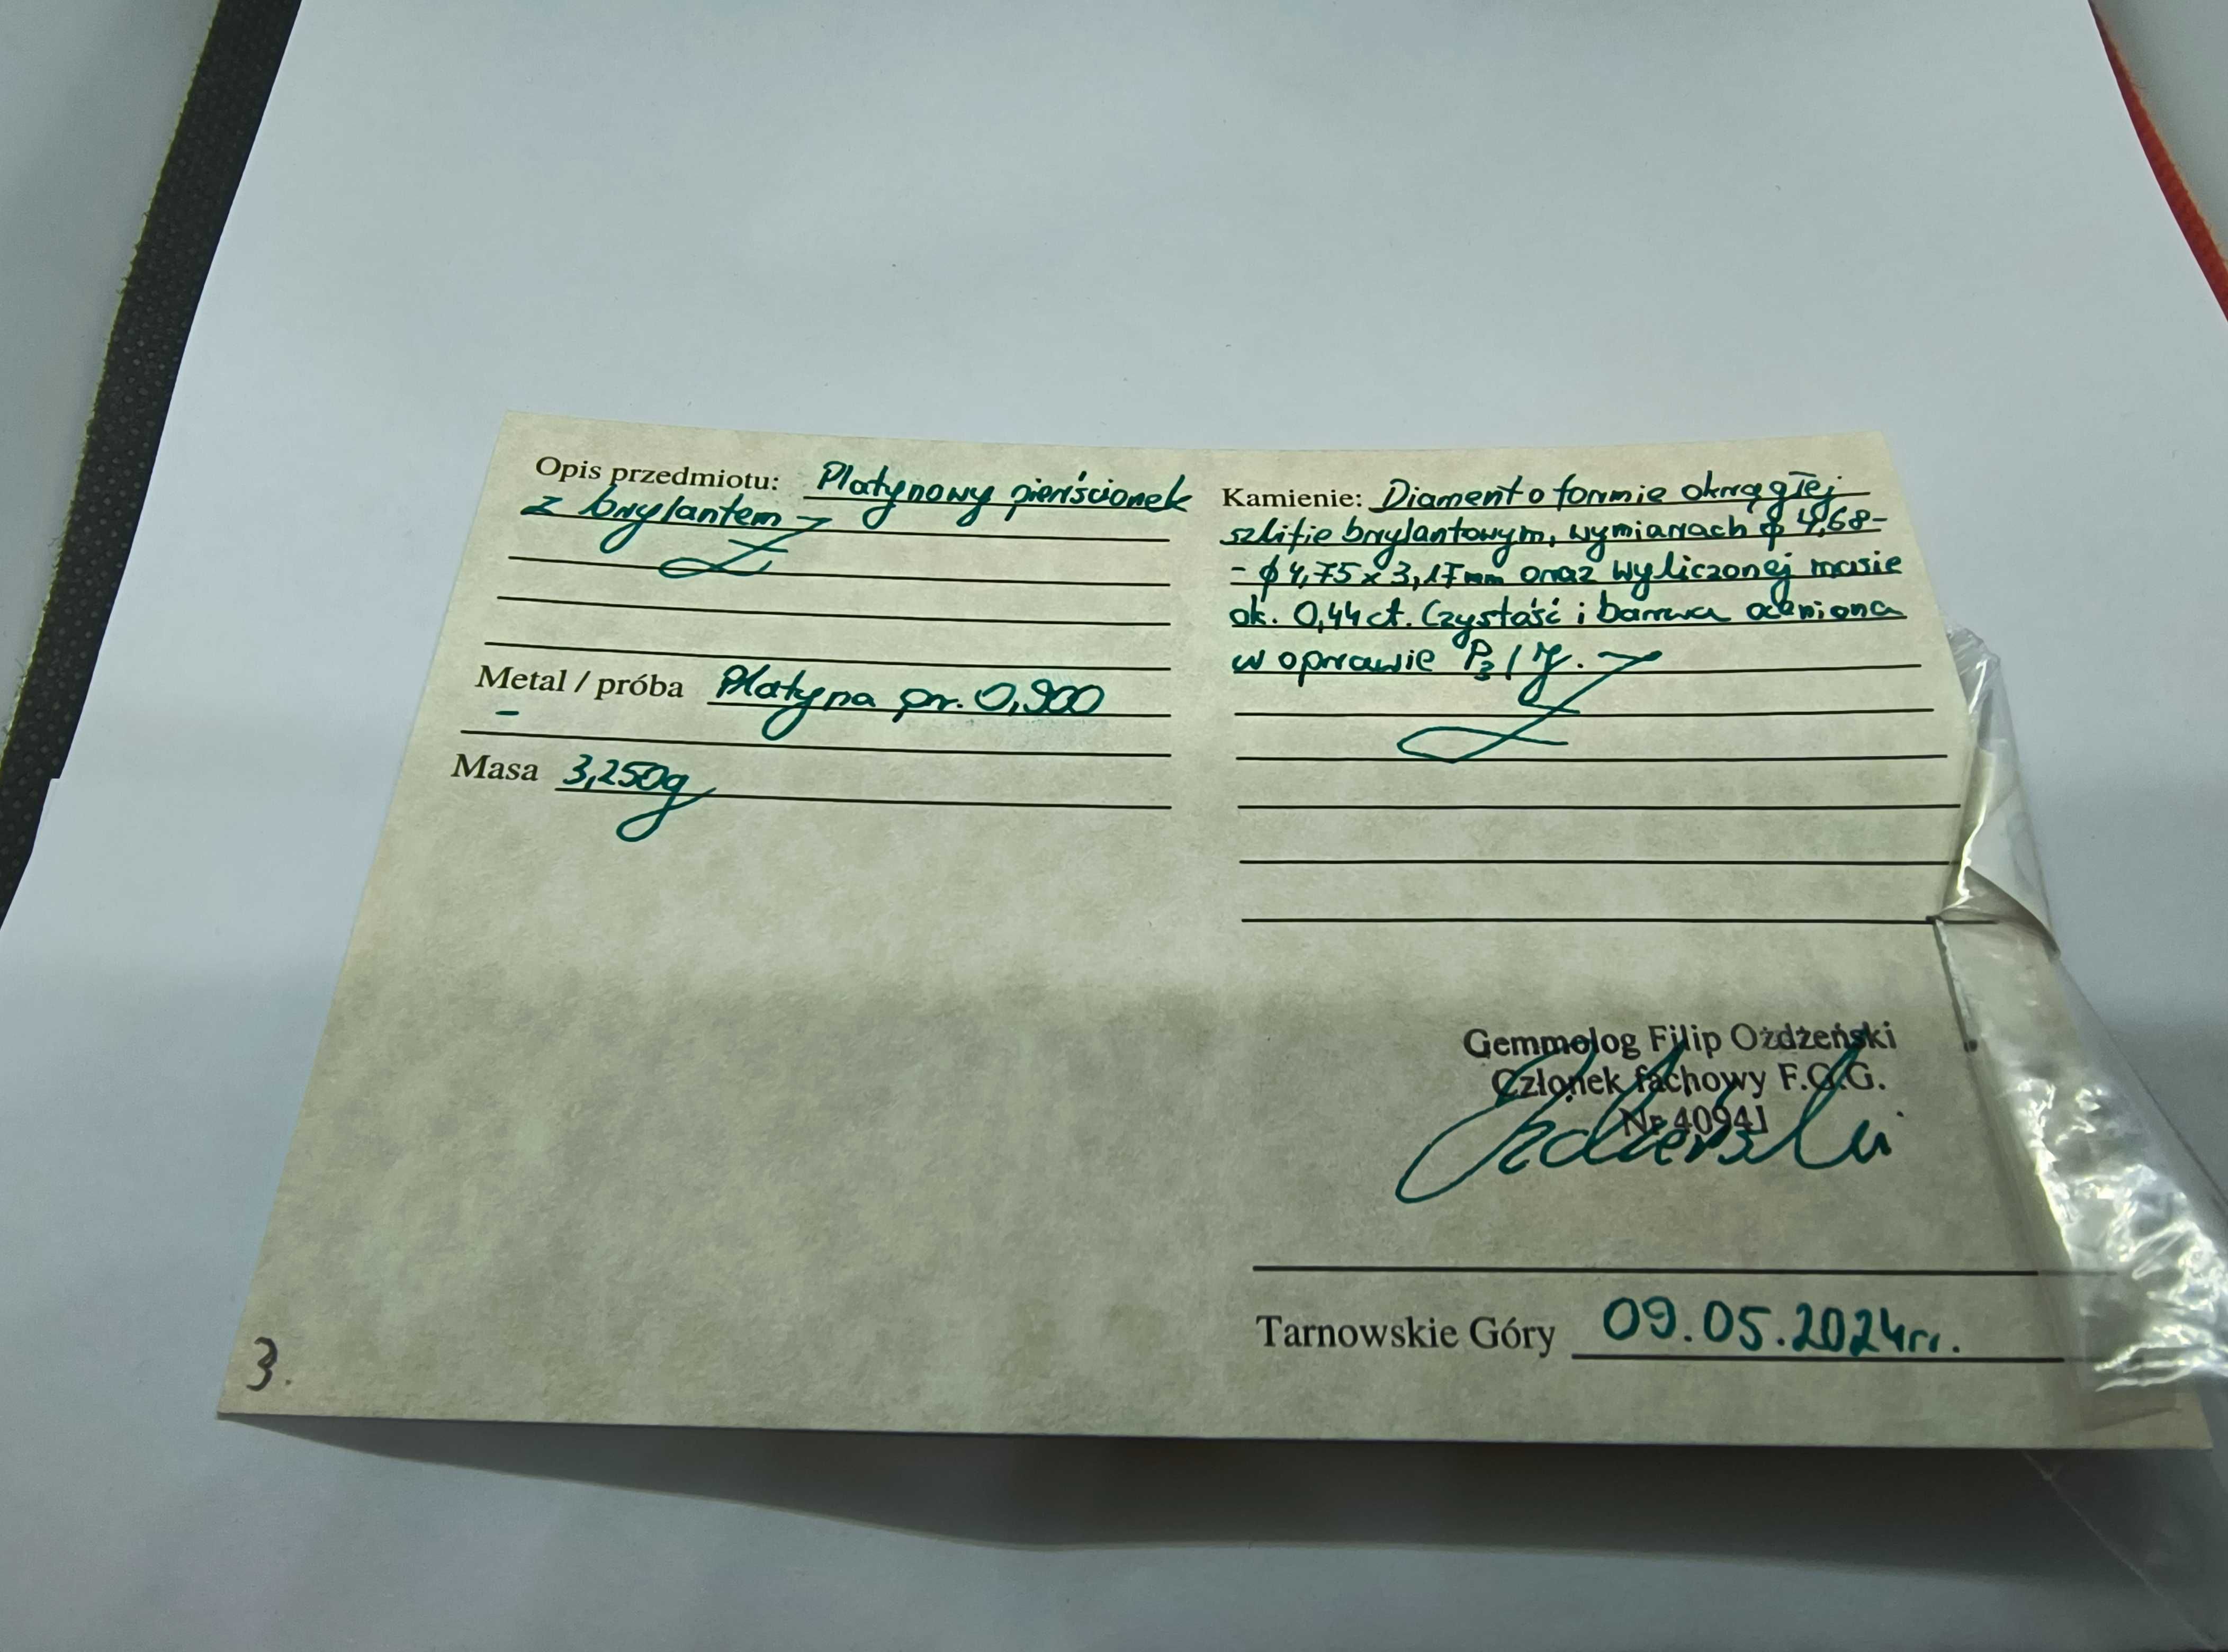 Opis przedmiotu: Platynowy pierścionek
z brylantem
Metal / próba Platyna pr. 0,900
-
Masa 3,250g
Kamienie: Diament o formie okrągłej
szlifie brylantowym, wymiarach ϕ 4,68-
- ϕ 4,75 x 3,17mm oraz wyliczonej masie
ok. 0,44 ct. Czystość i barwa oceniona
w oprawie P3 / J.
Gemmolog Filip Ożdżeński
Członek fachowy F.G.G.
Nr 40941
Tarnowskie Góry 09.05.2024r.
3.